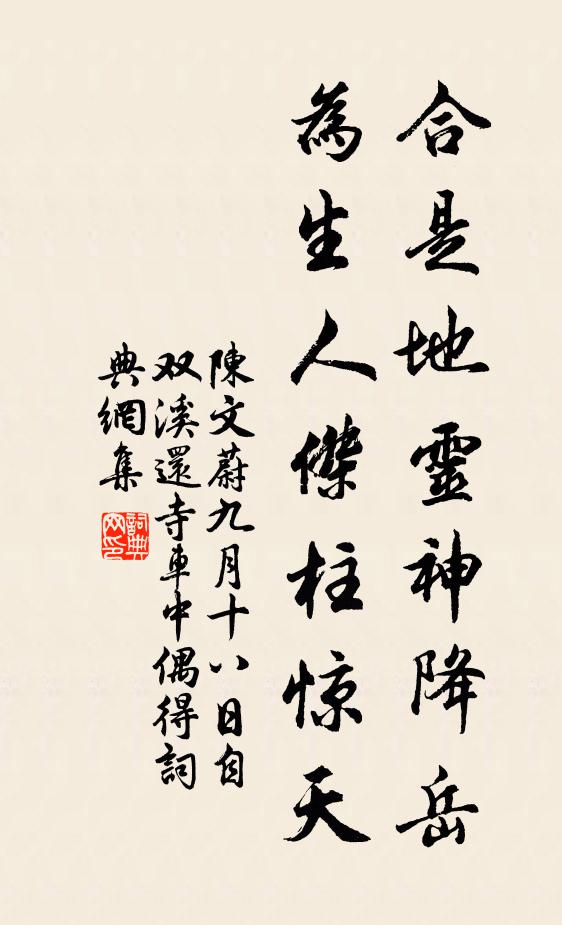 合是地靈神降岳
為生人傑柱惊天
陳文蔚九月十八日自
双溪還寺車中偶得詞
典網集
詞典网印